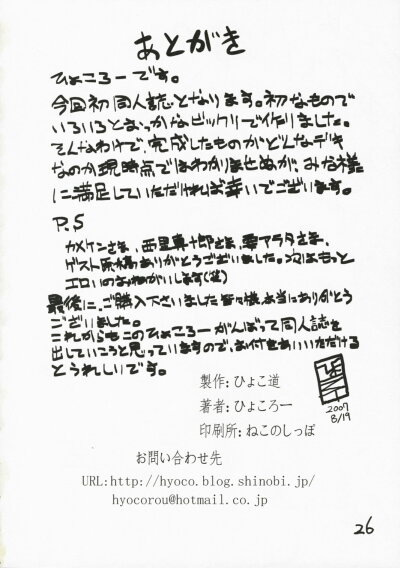 あとがき
ひょころーです。
今回初同人誌となります。初なもので
いろいろとおっかなビックリで作りました。
そんなわけで、完成したものがどんなデキ
なのか現時点ではわかりませぬが、みな様
に満足していただければ幸いでございます。
P.S
カメケンさま、西里真十郎さま、アラタさま、
ゲスト原稿ありがとうございました。次はもっと
エロいのおねがいします(笑)
最後に、ご購入下さいました皆々様、本当にありがとう
ございました。
これからもこのひょころーがんばって同人誌を
出していこうと思っていますので、お付きあいいただける
とうれしいです。
製作：ひょこ道
著者：ひょころー
印刷所：ねこのしっぽ
2007
8/19
お問い合わせ先
URL:http://hyoco.blog.shinobi.jp/
hyocorou@hotmail.co.jp
26